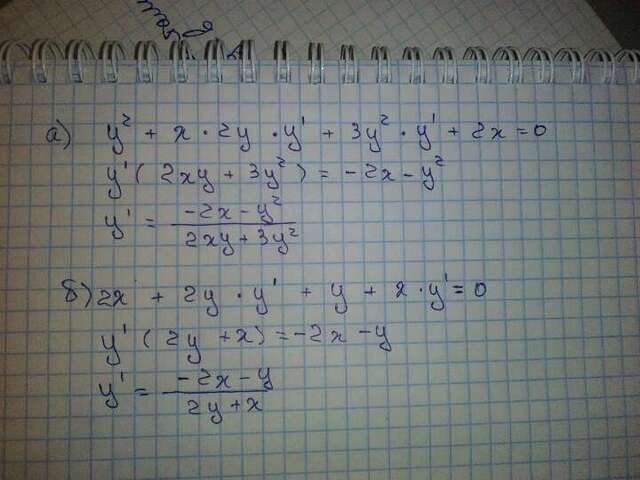 а) y² + x · 2y · y' + 3y² · y' + 2x = 0
y' ( 2xy + 3y² ) = -2x - y²
y' = \frac{-2x - y²}{2xy + 3y²}
б) 2x + 2y · y' + y + x · y' = 0
y' ( 2y + x) = -2x - y
y' = \frac{-2x - y}{2y + x}